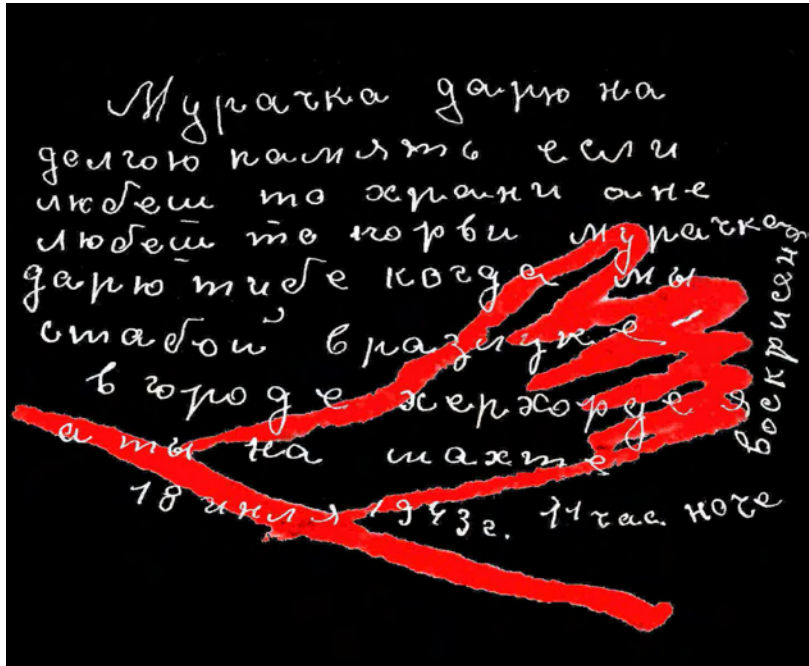 Мурачка дарю на
делгою камять если
любеш то храни ане
любеш то порви мурачка я
дарю тибе когда мы
стабой в разлуке –
в городе херхорде я
а ты на шахте
18 июля 1943 г. 11 час. ноче
воскрисяня